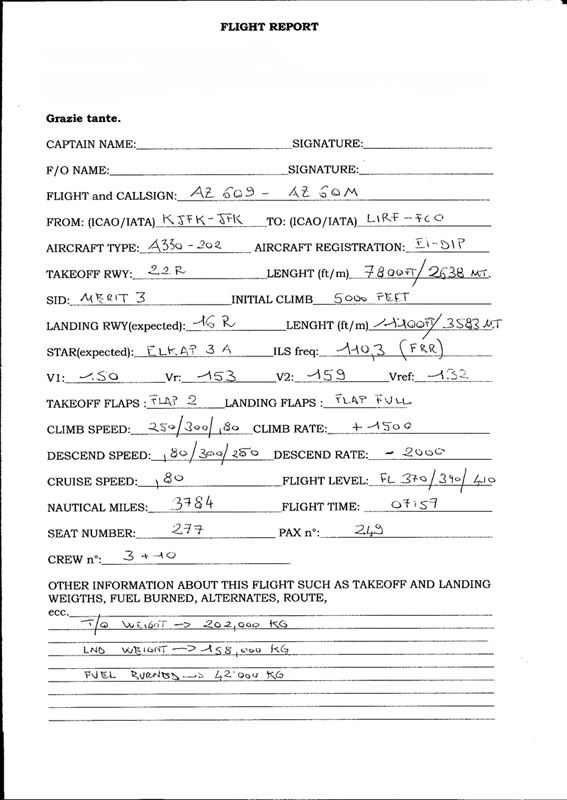 FLIGHT REPORT
Grazie tante.
CAPTAIN NAME: SIGNATURE:
F/O NAME: SIGNATURE:
FLIGHT and CALLSIGN: AZ 609 - AZ 60M
FROM: (ICAO/IATA) KJFK-JFK TO: (ICAO/IATA) LIRF-FCO
AIRCRAFT TYPE: A330-202 AIRCRAFT REGISTRATION: EI-DIP
TAKEOFF RWY: 22R LENGHT (ft/m) 7800FT/2638 MT.
SID: MERIT 3 INITIAL CLIMB 5000 FEET
LANDING RWY(expected): 16 R LENGHT (ft/m) 11100FT/3583 MT
STAR(expected): ELKAP 3 A ILS freq: 110,3 (FRR)
V1: 150 Vr: 153 V2: 159 Vref: 132
TAKEOFF FLAPS : FLAP 2 LANDING FLAPS : FLAP FULL
CLIMB SPEED: 250/300/,80 CLIMB RATE: +1500
DESCEND SPEED: ,80/300/250 DESCEND RATE: -2000
CRUISE SPEED: ,80 FLIGHT LEVEL: FL 370/390/410
NAUTICAL MILES: 3784 FLIGHT TIME: 07:57
SEAT NUMBER: 277 PAX n°: 249
CREW n°: 3+10
OTHER INFORMATION ABOUT THIS FLIGHT SUCH AS TAKEOFF AND LANDING
WEIGTHS, FUEL BURNED, ALTERNATES, ROUTE,
ecc.
T/O WEIGHT -> 202,000 KG
LND WEIGHT -> 158,000 KG
FUEL BURNED -> 42'000 KG